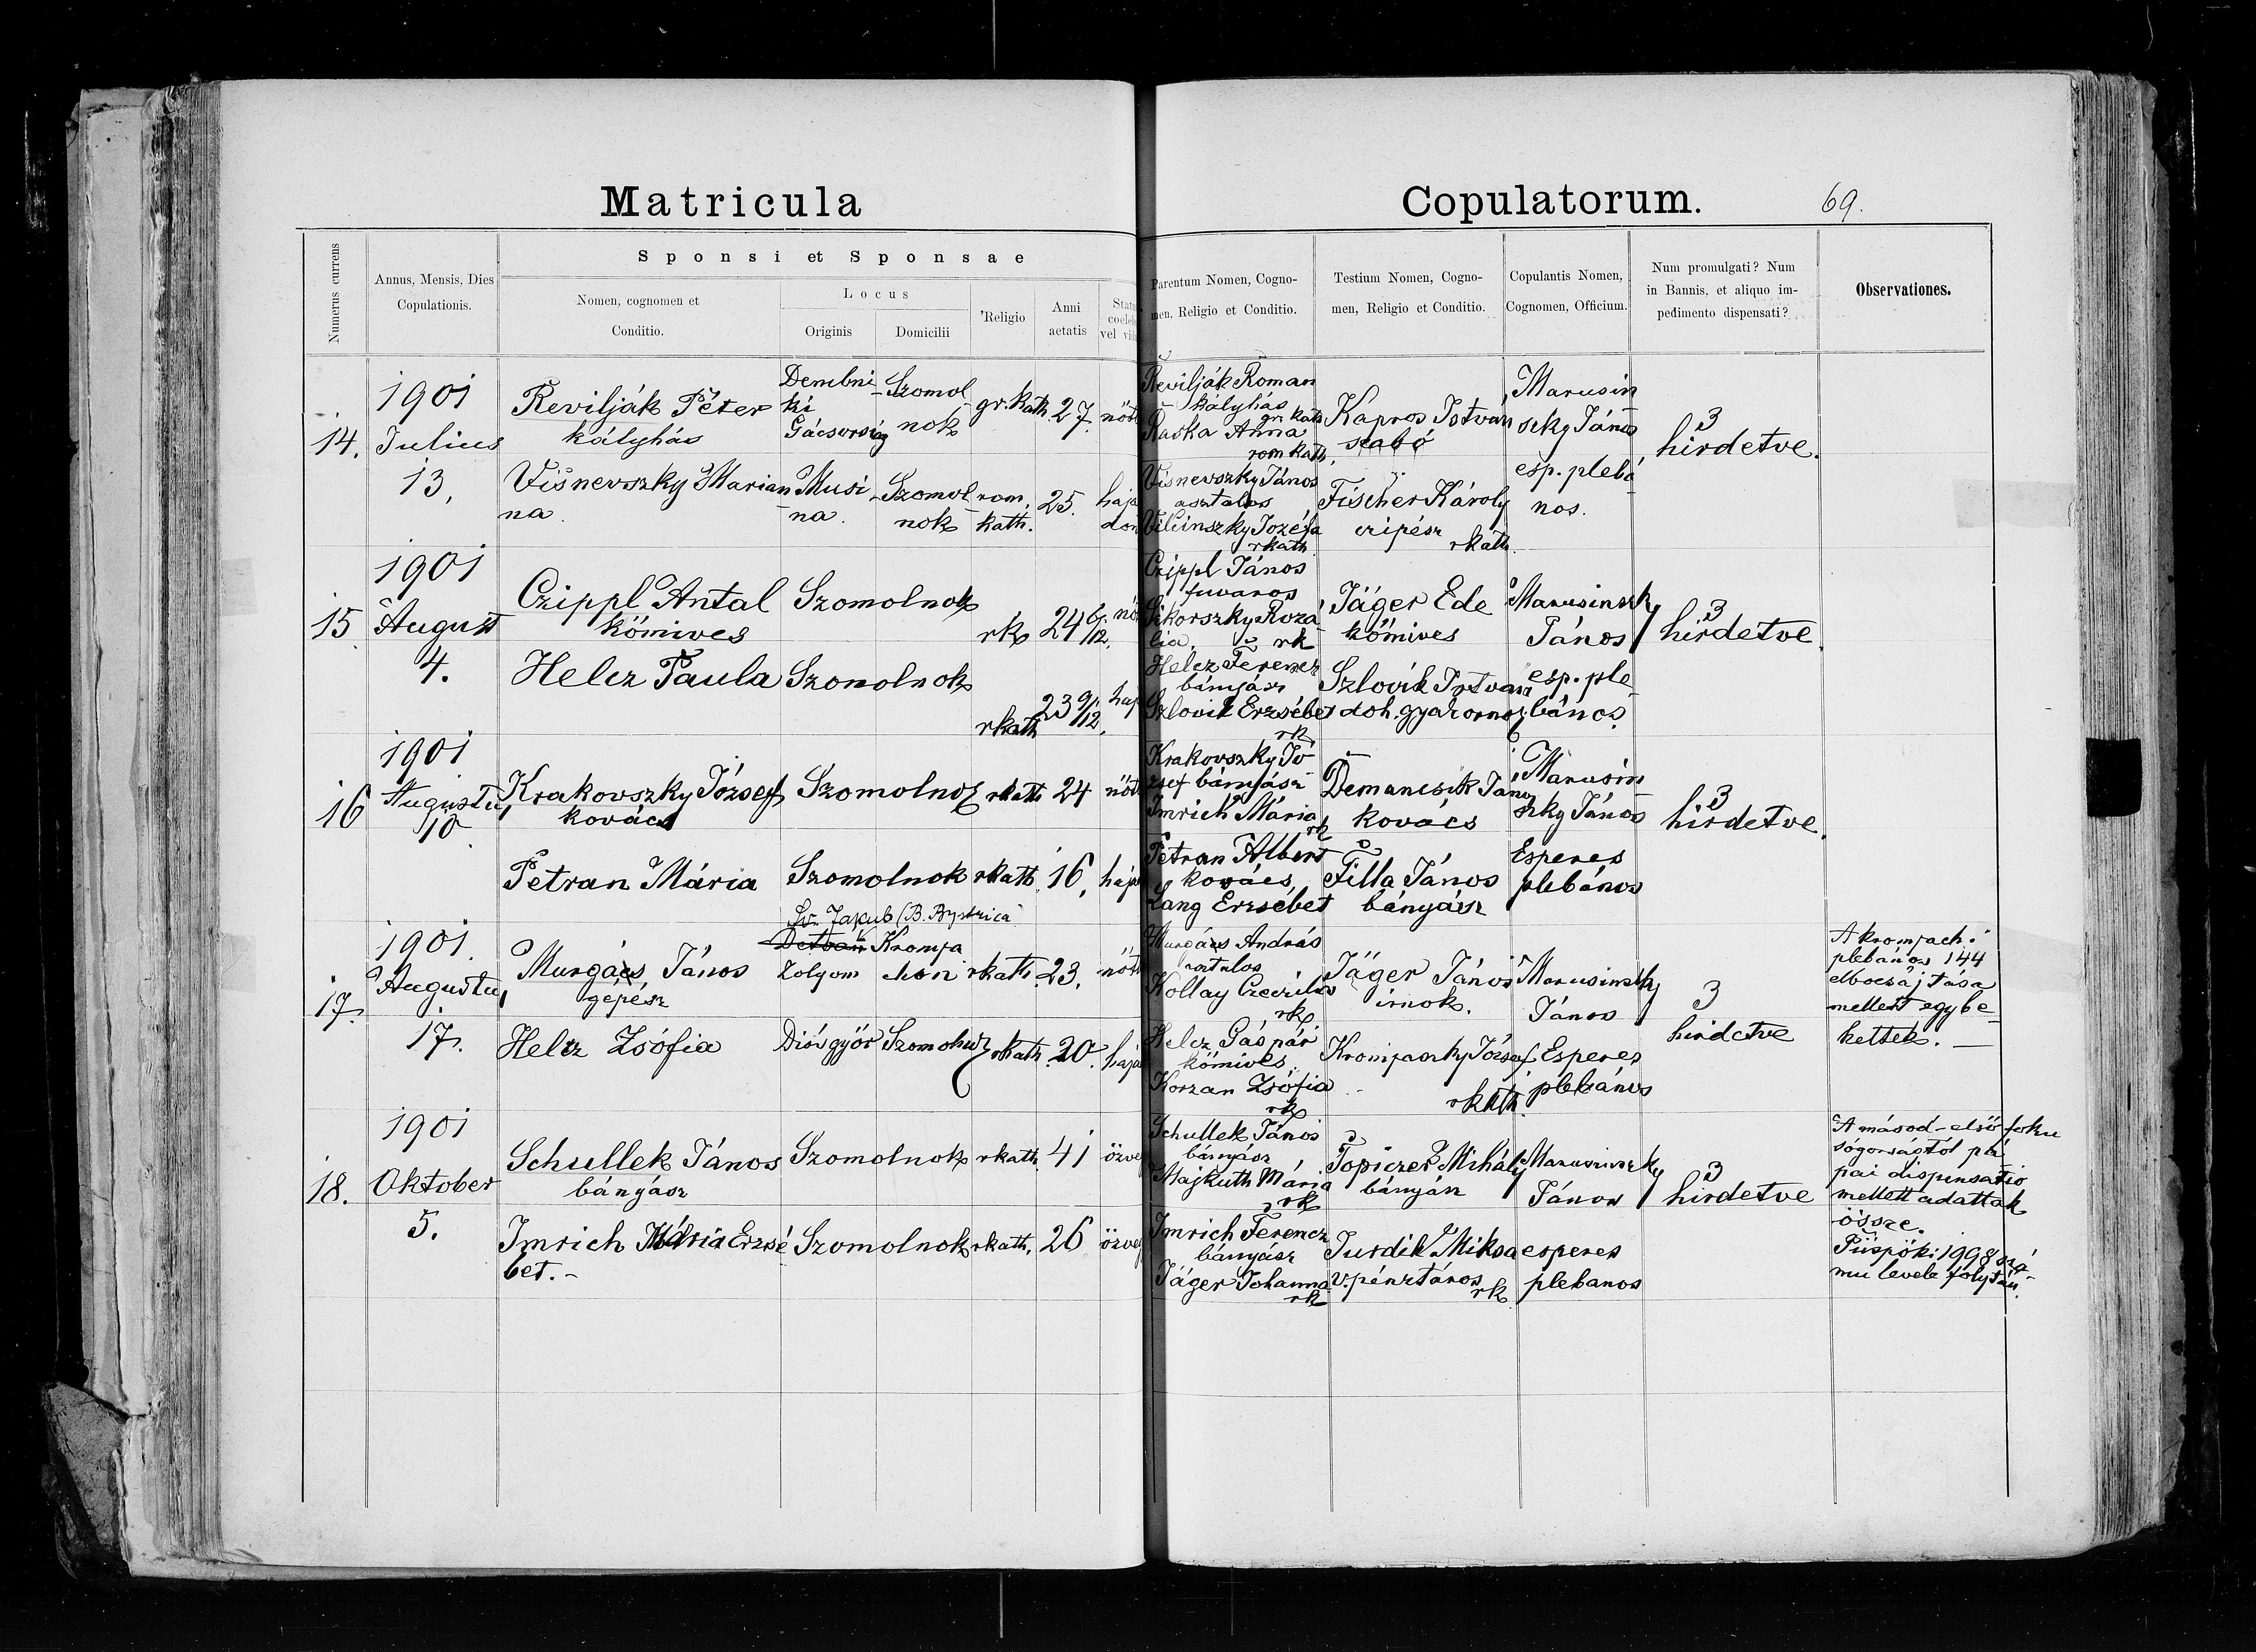 Matricula
Copulatorum.
69.
Numerus currens
Annus, Mensis, Dies
Copulationis.
Sponsi et Sponsae
Nomen, cognomen et
Conditio.
Locus
Originis
Domicilii
Religio
Anni
aetatis
Parentum Nomen, Cogno-
men, Religio et Conditio.
Testium Nomen, Cogno-
men, Religio et Conditio.
Copulantis Nomen,
Cognomen, Officium.
Num promulgati? Num
in Bannis, et aliquo im-
pedimento dispensati?
Observationes.
14.
1901
Julius
13.
Reviljak Péter
kályhás
Dembni
ki
Gácsország
Szomol
nok
gr. kath.
27.
nőt
Reviljàk Roman
kályhás
gr. kath.
Ruska Anna
rom kath.
Kapros István
szabó
Marusin
szky János
esp. plebá
nos.
3
hirdetve.
Visnevszky Marian
na
Musi
na.
Szomol
nok
rom.
kath.
25.
haja
don
Visnevszky János
asztalos
Vilcinszky Jozéfa
rkath
Fischer Károly
czipész
rkath.
15.
1901
August
4.
Czippl Antal
kömives
Szomolnok
rk
24 6/12.
nő
Czippl János
fuvaros
Sikorszky Rozá
lia. rk
Jäger Ede
kőmives
Marusinszky
János
esp. ple
bános.
3
hirdetve.
Helcz Paula
Szomolnok
rkath
23 9/12.
haj
Helcz Ferencz
bányász
Szlovik Erzsébet
rk
Szlovik István
doh. gyárornok
16
1901
Augustus
10.
Krakovszky József
kovács
Szomolnok
rkath
24
nőt
Krakovszky Jó
zsef bányász
Imrich Mária
rk
Demancsik János
kovács
Marusin
szky János
Esperes
plébános
3
hirdetve.
Petran Mária
Szomolnok
rkath.
16.
haja
Petran Albert
kovács,
Lang Erzsébet
Filla János
bányász
17.
1901.
Augustus
17.
Murgács János
gépész
Sv. Jakub (B. Bystrica
Detvan
Zolyom
Krompa
chon
rkath.
23.
nőt
Murgács András
Kollay Czeczilia
rk
Jäger János
irnok.
Marusinszky
János
Esperes
plebános
3
hirdetve
A krompach i
plebános 144
elbocsájtása
mellett egybe
keltek.
Helcz Zsófia
Diósgyőr
Szomolnok
rkath.
20.
haja
Helcz Gáspár
kömives
Korzan Zsófia
rk
Krompaszky József
rkath.
18.
1901
Oktober
5.
Schullek János
bányász
Szomolnok
rkath.
41
özve
Schullek János
bányász
Majkuth Mária
rk
Topiczer Mihály
bányász
Marusinszky
János
esperes
plebanos
3
hirdetve
A másod-első foku
sógorságtól pá
pai dispensatio
mellett adattak
össze.
Püspöki 1998 szá-
mu levele folytán.
Imrich Mária Erzsé
bet.-
Szomolnok
rkath.
26
özve
Imrich Ferencz
bányász
Jäger Johanna
rk
Jurdik Miksa
v. pénztáros
rk